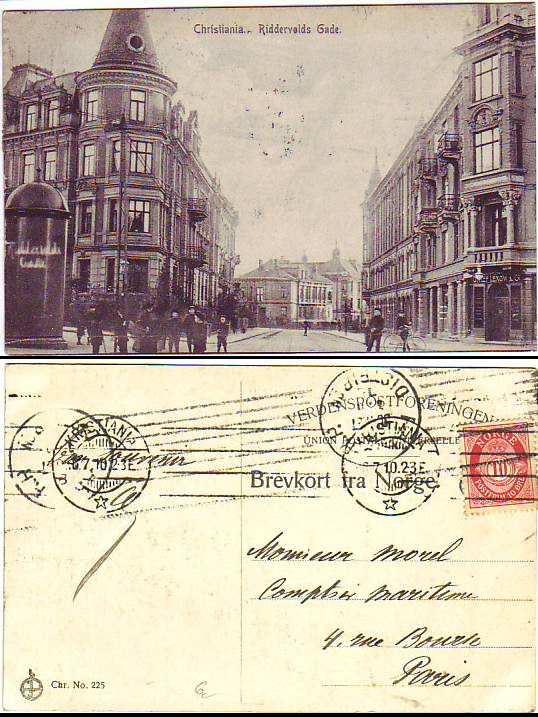 Christiania. Riddervolds Gade.
VERDENSPOSTFORENINGEN
UNION POSTALE UNIVERSELLE
Brevkort fra Norge.
KRISTIANIA
6.7.10.23E
KRISTIANIA
7.10.23E
NORGE
10
un Souvenir
Monsieur Morel
Comptoir maritime
4, rue Bourse
Paris
Chr. No. 225